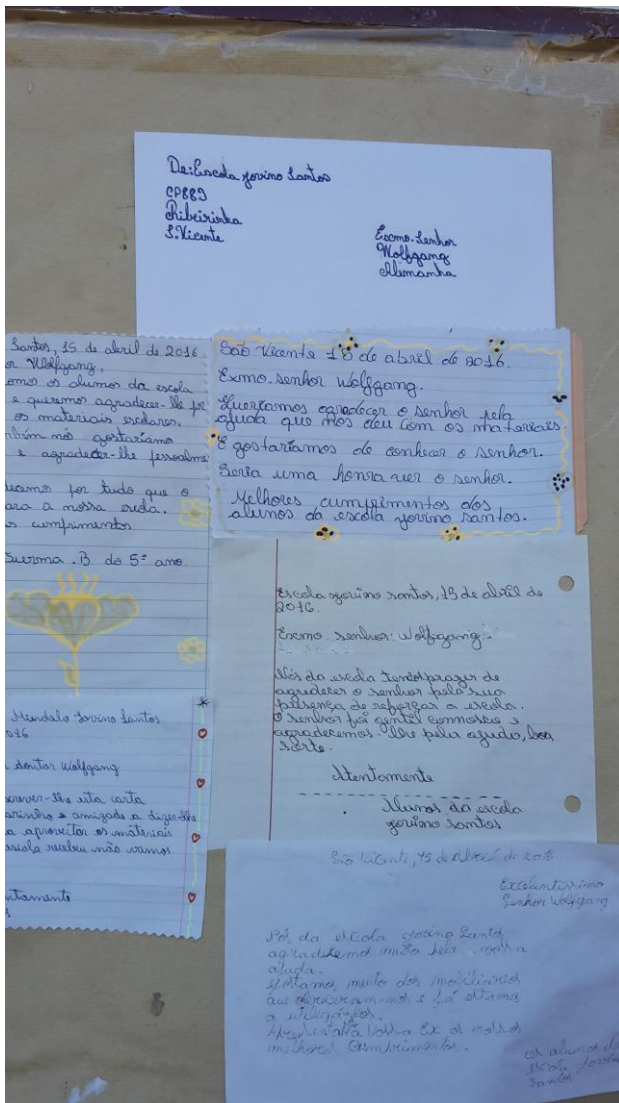 De: Escola Jovino Santos
CP883
Ribeirinha
S. Vicente
Excmo. Senhor
Wolfgang
Alemanha
Santos, 15 de abril de 2016.
or Wolfgang,
omos os alunos da escola
e queremos agradecer-lhe por
os materiais escolares.
mbém nós gostaríamo
e agradecer-lhe pessoalme
ecemos por tudo que o
ara a nossa escola.
s cumprimentos
Turma. B do 5º ano.
São Vicente 18 de abril de 2016.
Exmo. senhor Wolfgang.
Queríamos agradecer o senhor pela
ajuda que nos deu com os materiais.
E gostaríamos de conhecer o senhor.
Seria uma honra ver o senhor.
Melhores cumprimentos dos
alunos da escola jovino santos.
Escola jovino santos, 15 de abril de
2016.
Excmo. senhor: Wolfgang
Nós da escola prazer de
agradecer o senhor pela sua
presença de reforçar a escola.
O senhor foi gentil connosco e
agradecemos-lhe pela ajuda, boa
sorte.
Atentamente
Alunos da escola
jovino santos
Mindelo Jovino Santos
016
doutor Wolfgang
screver-lhe esta carta
carinho e amizade a dizer-lhe
a aproveitar os materiais
escola recebeu não vamos
ntamente
São Vicente, 15 de Abril de 2016
Excelentissimo
Senhor Wolfgang
Nós, da escola Jovino Santos
agradecemos muito pela vossa
ajuda.
Gostamos muito dos mobiliários
que ofereceram-nos e já estamos
a utilizá-los.
Apresentará Vossa Ex os nossos
melhores Cumprimentos.
os alunos da
escola Jovino
Santos